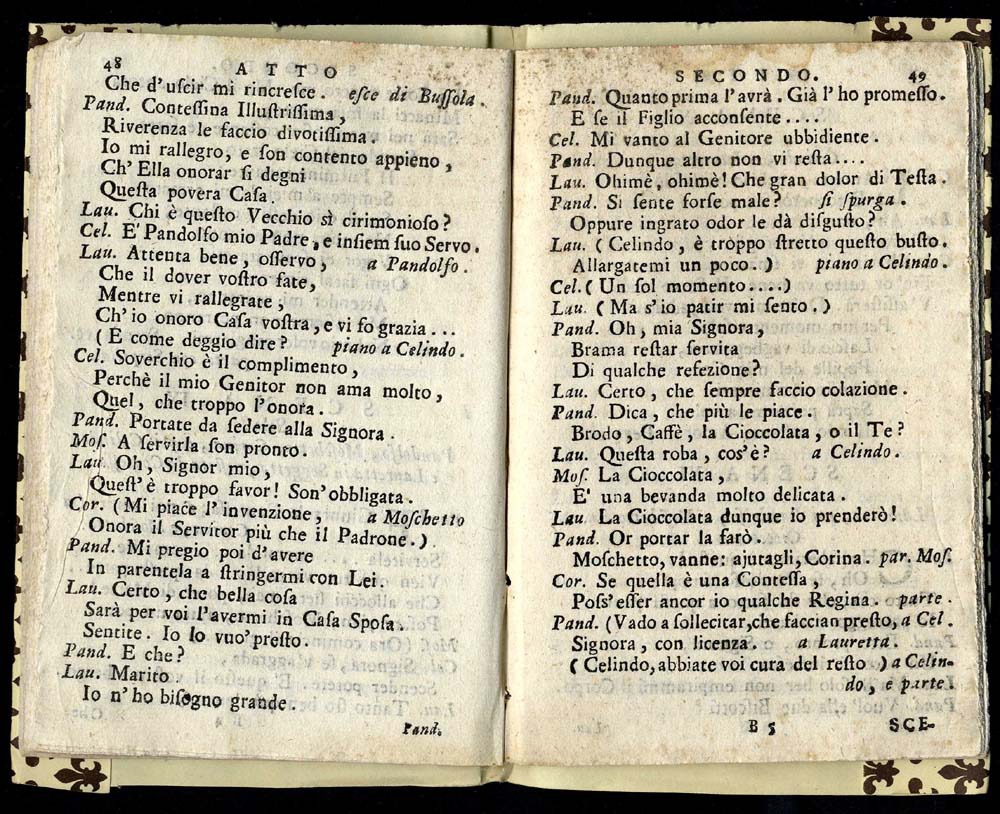 48
ATTO
Che d'uſcir mi rincreſce. eſce di Buſſola.
Pand. Conteſſina Illuſtriſſima,
Riverenza le faccio divotiſſima.
Io mi rallegro, e ſon contento appieno,
Ch' Ella onorar ſi degni
Queſta povera Caſa.
Lau. Chi è queſto Vecchio sì cirimonioſo?
Cel. E' Pandolfo mio Padre, e inſiem ſuo Servo.
Lau. Attenta bene, oſſervo, a Pandolfo.
Che il dover voſtro fate,
Mentre vi rallegrate,
Ch' io onoro Caſa voſtra, e vi fo grazia...
(E come deggio dire? piano a Celindo.
Cel. Soverchio è il complimento,
Perchè il mio Genitor non ama molto,
Quel, che troppo l'onora.
Pand. Portate da ſedere alla Signora.
Moſ. A ſervirla ſon pronto.
Lau. Oh, Signor mio,
Queſt' è troppo favor! Son' obbligata.
Cor. (Mi piace l' invenzione, a Moſchetto
Onora il Servitor più che il Padrone.)
Pand. Mi pregio poi d'avere
In parentela a ſtringermi con Lei.
Lau. Certo, che bella coſa
Sarà per voi l'avermi in Caſa Spoſa.
Sentite. Io lo vuo' preſto.
Pand. E che?
Lau. Marito.
Io n' ho biſogno grande.
Pand.
SECONDO. 49
Pand. Quanto prima l'avrà. Già l' ho promeſſo.
E ſe il Figlio acconſente....
Cel. Mi vanto al Genitore ubbidiente.
Pand. Dunque altro non vi reſta....
Lau. Ohimè, ohimè! Che gran dolor di Teſta.
Pand. Si ſente forſe male? ſi ſpurga.
Oppure ingrato odor le dà diſguſto?
Lau. (Celindo, è troppo ſtretto queſto buſto.
Allargatemi un poco.) piano a Celindo.
Cel. (Un ſol momento....)
Lau. (Ma s'io patir mi ſento.)
Pand. Oh, mia Signora,
Brama reſtar ſervita
Di qualche refezione?
Lau. Certo, che ſempre faccio colazione.
Pand. Dica, che più le piace.
Brodo, Caffè, la Cioccolata, o il Te?
Lau. Queſta roba, cos'è? a Celindo.
Moſ. La Cioccolata,
E' una bevanda molto delicata.
Lau La Cioccolata dunque io prenderò!
Pand. Or portar la farò.
Moſchetto, vanne: ajutagli, Corina. par. Moſ.
Cor. Se quella è una Conteſſa,
Poſs' eſſer ancor io qualche Regina. parte.
Pand. (Vado a ſollecitar, che faccian preſto, a Cel.
Signora, con licenza. a Lauretta.
(Celindo, abbiate voi cura del reſto) a Celin-
do, e parte.
B 5 SCE-